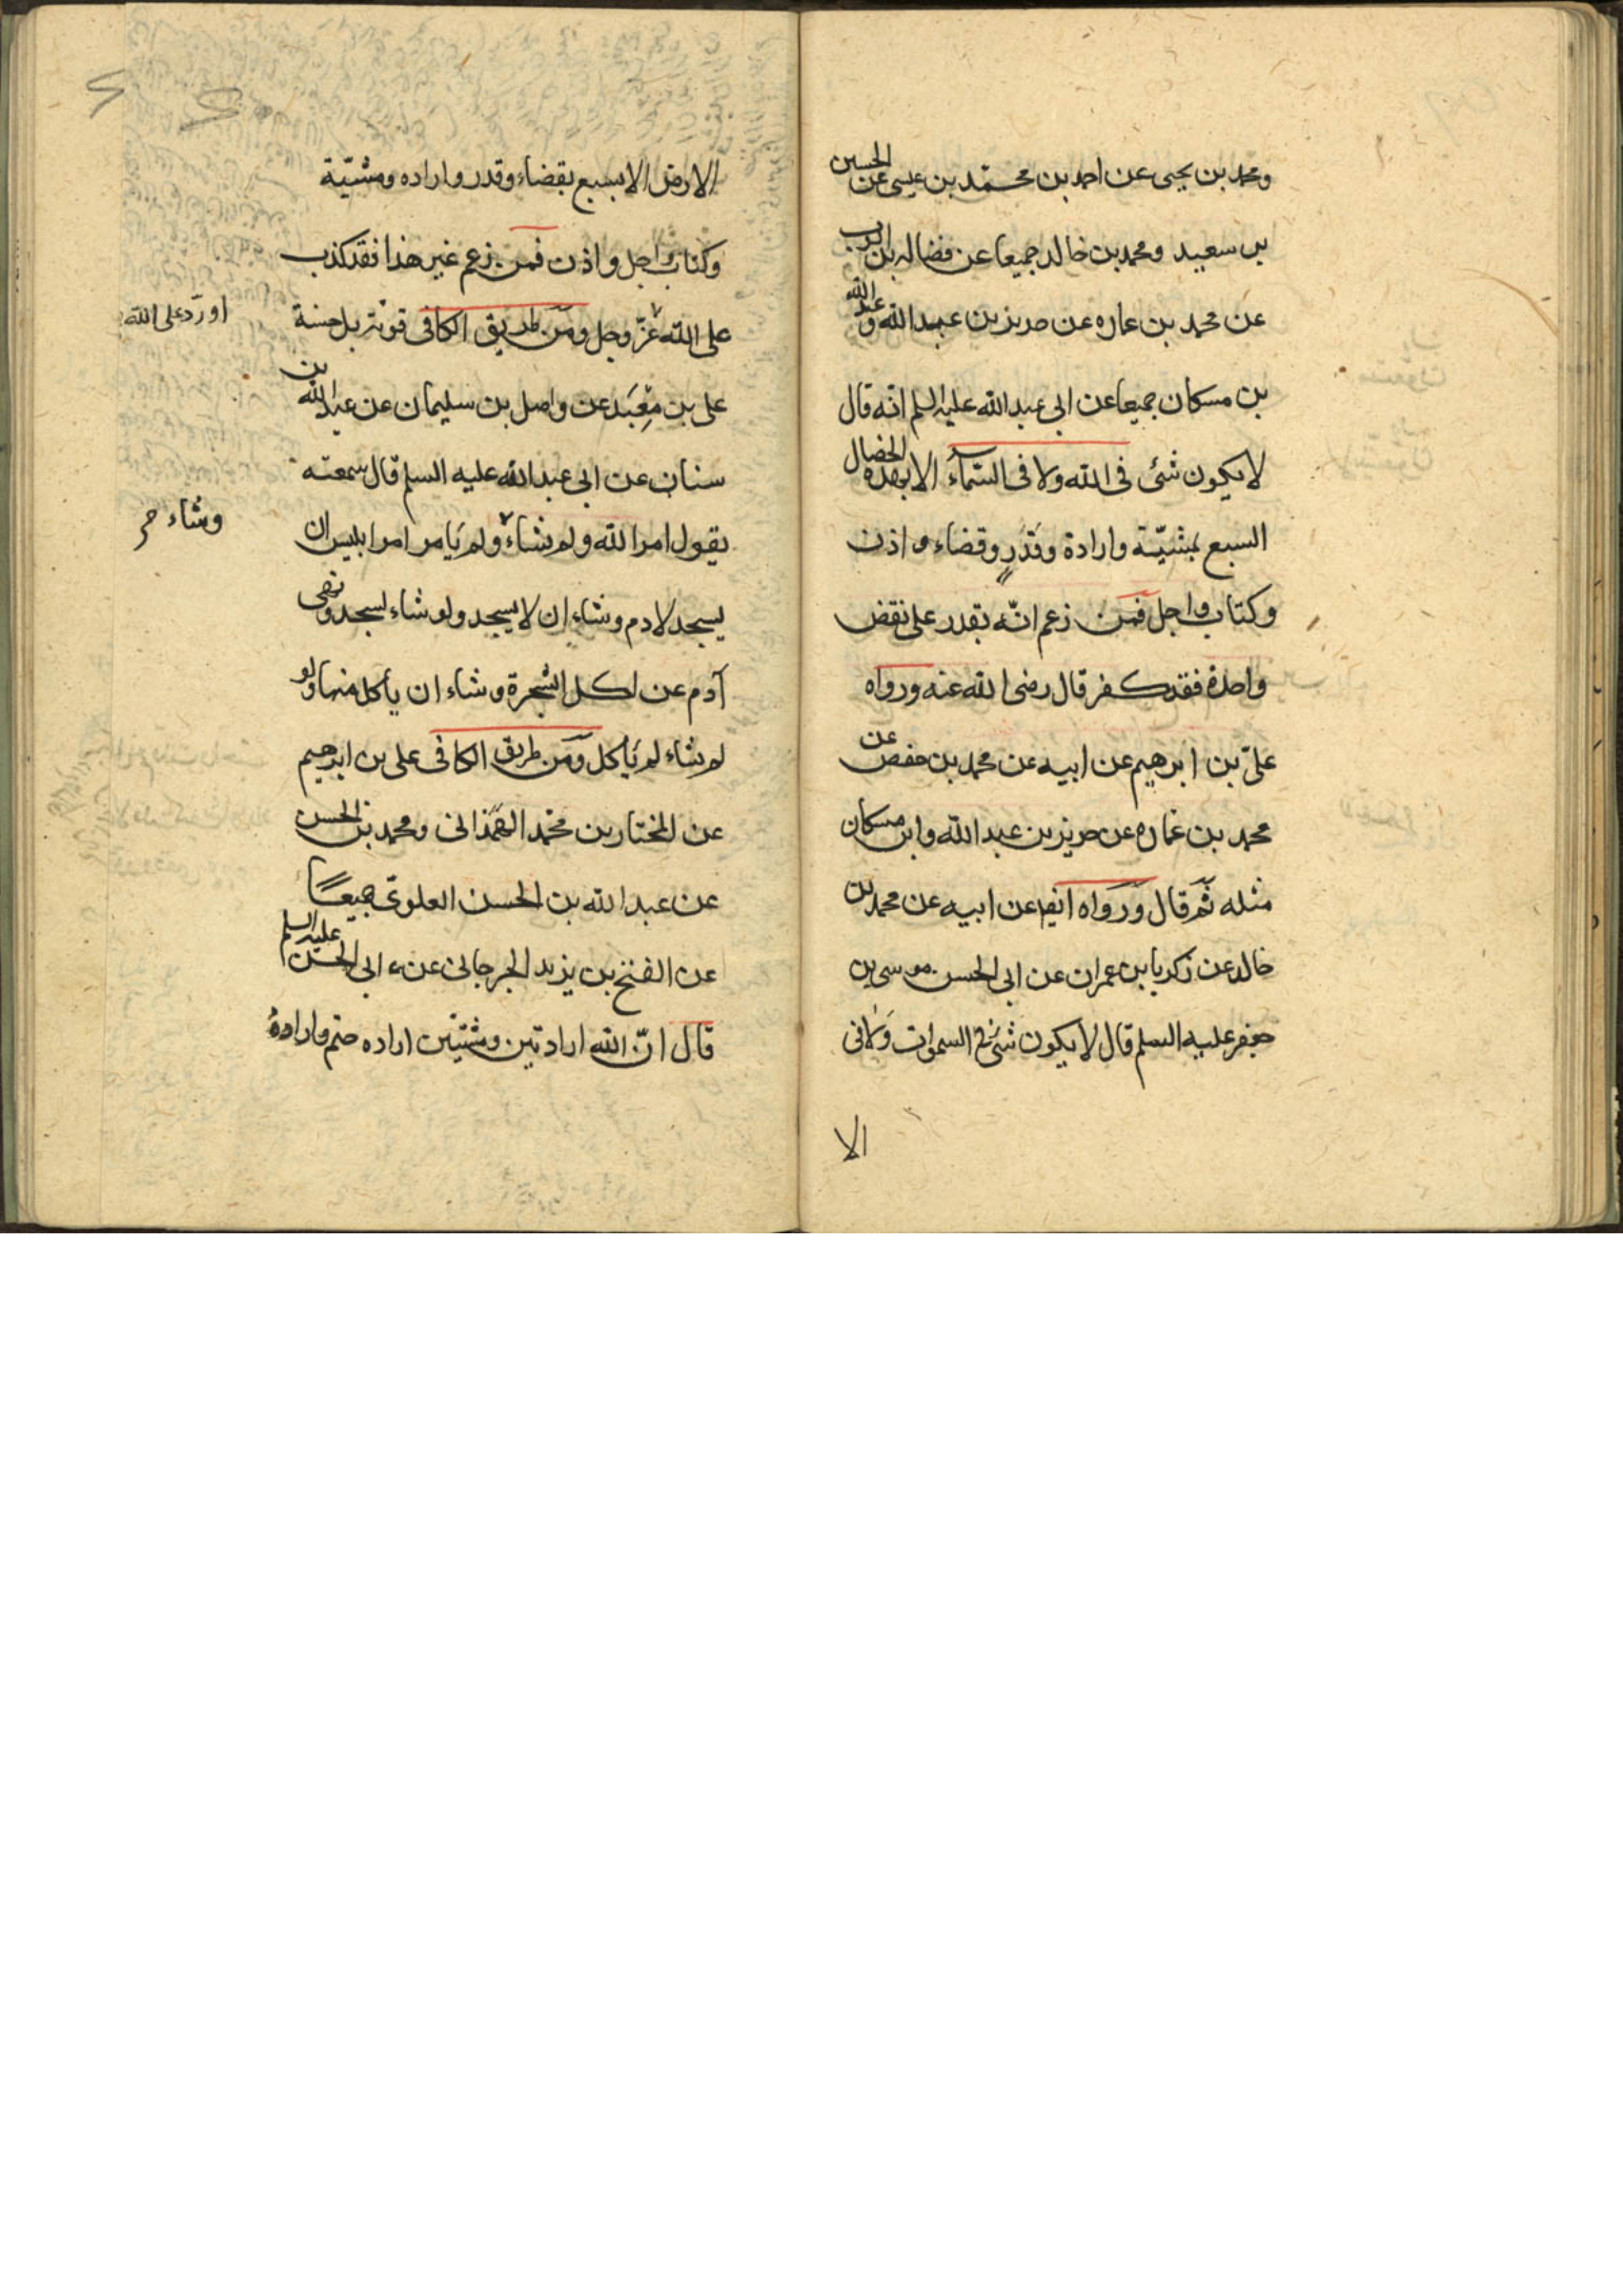 ومحمد بن يحيى عن احمد بن محمد بن عيسى عن الحسين
بن سعيد ومحمد بن خالد جميعا عن فضاله بن ايوب
عن محمد بن عماره عن حريز بن عبد الله و عبد الله
بن مسكان جميعا عن ابى عبد الله عليه السلم انه قال
لا يكون شئ فى الله ولا فى السماء الا بهذه الخصال
السبع بمشيّة وارادة وقدرٍ وقضاء و اذن
وكتاب واجل فمن زعم انّه يقدر على نقض
واحدة فقد كفر قال رضى الله عنه ورواه
علىّ بن ابرهيم عن ابيه عن محمد بن حفص عن
محمد بن عماره عن حريز بن عبد الله وابن مسكان
مثله ثم قال ورواه ايضا عن ابيه عن محمد بن
خالد عن زكريا بن عمران عن ابى الحسن موسى بن
جعفر عليه السلم قال لا يكون شئ فى السموات ولا فى
الا
الارض الا بسبع بقضاء وقدر واراده ومشيّة
وكتاب واجل واذن فمن زعم غير هذا فقد كذب
على الله عزّ وجل ومن طريق الكافى قوته بل حسنة
او ردّ على الله
على بن مِعبَد عن واصل بن سليمان عن عبد الله بن
سنان عن ابى عبد الله عليه السلم قال سمعته
يقول امر الله ولم يشاء ولم يامر امر ابليس ان
وشاء
يسجد لادم وشاء ان لا يسجد ولو شاء لسجد ونهى
آدم عن اكل الشجرة وشاء ان يأكل منها ولو
لم يشاء لم يأكل ومن طريق الكافى على بن ابرهيم
عن المختار بن محمد الهمذانى ومحمد بن الحسن
عن عبد الله بن الحسن العلوىّ جميعًا
عن الفتح بن يزيد الجرجانى عن ابى الحسن عليه السلم
قال انّ الله ارادتين ومشيّتين اراده حتم وارادة